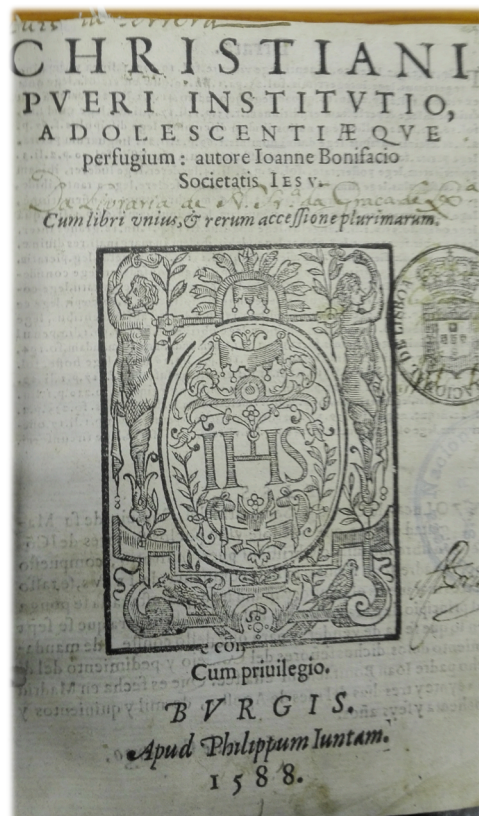 CHRISTIANI
PVERI INSTITVTIO,
ADOLESCENTIÆQVE
perfugium: autore Ioanne Bonifacio
Societatis IESV.
Da Livraria de N. Sr. da Graca de Lxª
Cum libri vnius, & rerum accessione plurimarum.
IHS
NACIONAL DE LISBOA
Cum priuilegio.
BVRGIS.
Apud Philippum Iuntam.
1588.